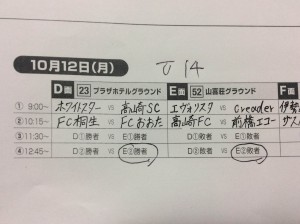 10月12日(月) U14
D面 23 プラザホテルグラウンド E面 52 山喜荘グラウンド F面
① 9:00~ ホワイトスター VS 高崎SC エヴォリスタ VS creader 伊勢
② 10:15~ FC桐生 VS FCおおた 高崎FC VS 前橋エコー
③ 11:30~ D①勝者 VS E①勝者 D①敗者 VS E①敗者
④ 12:45~ D②勝者 VS E②勝者 D②敗者 VS E②敗者